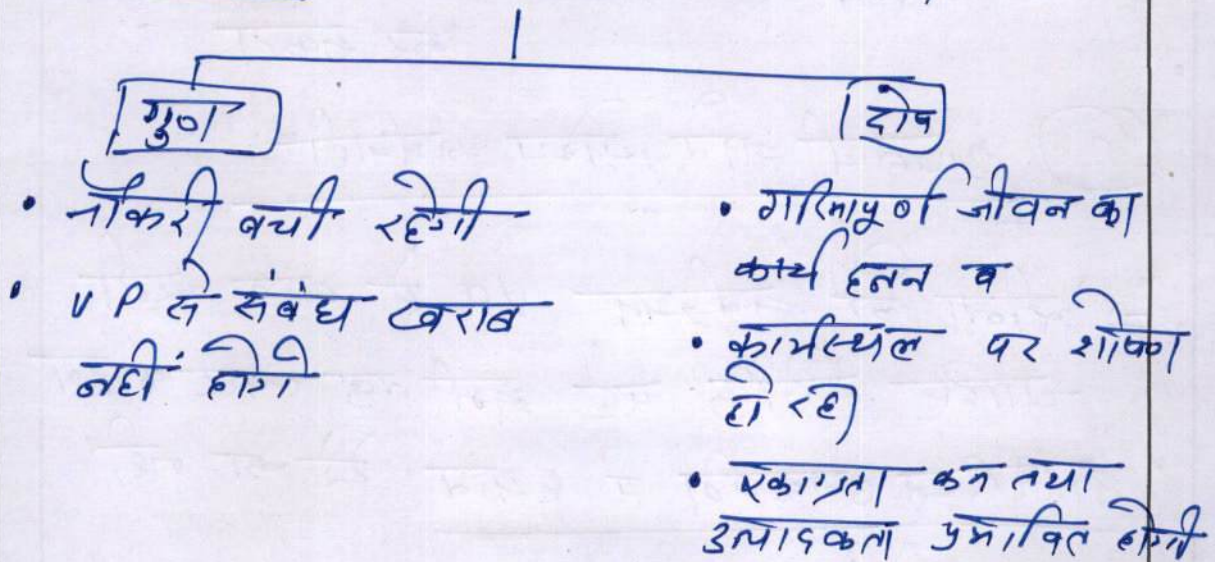 गुण
• नौकरी बची रहेगी
• VP से संबंध खराब
नहीं होंगे
दोष
• गरिमापूर्ण जीवन का
कार्य हनन व
• कार्यस्थल पर शोषण
हो रहा
• एकाग्रता कम तथा
उत्पादकता प्रभावित होगी